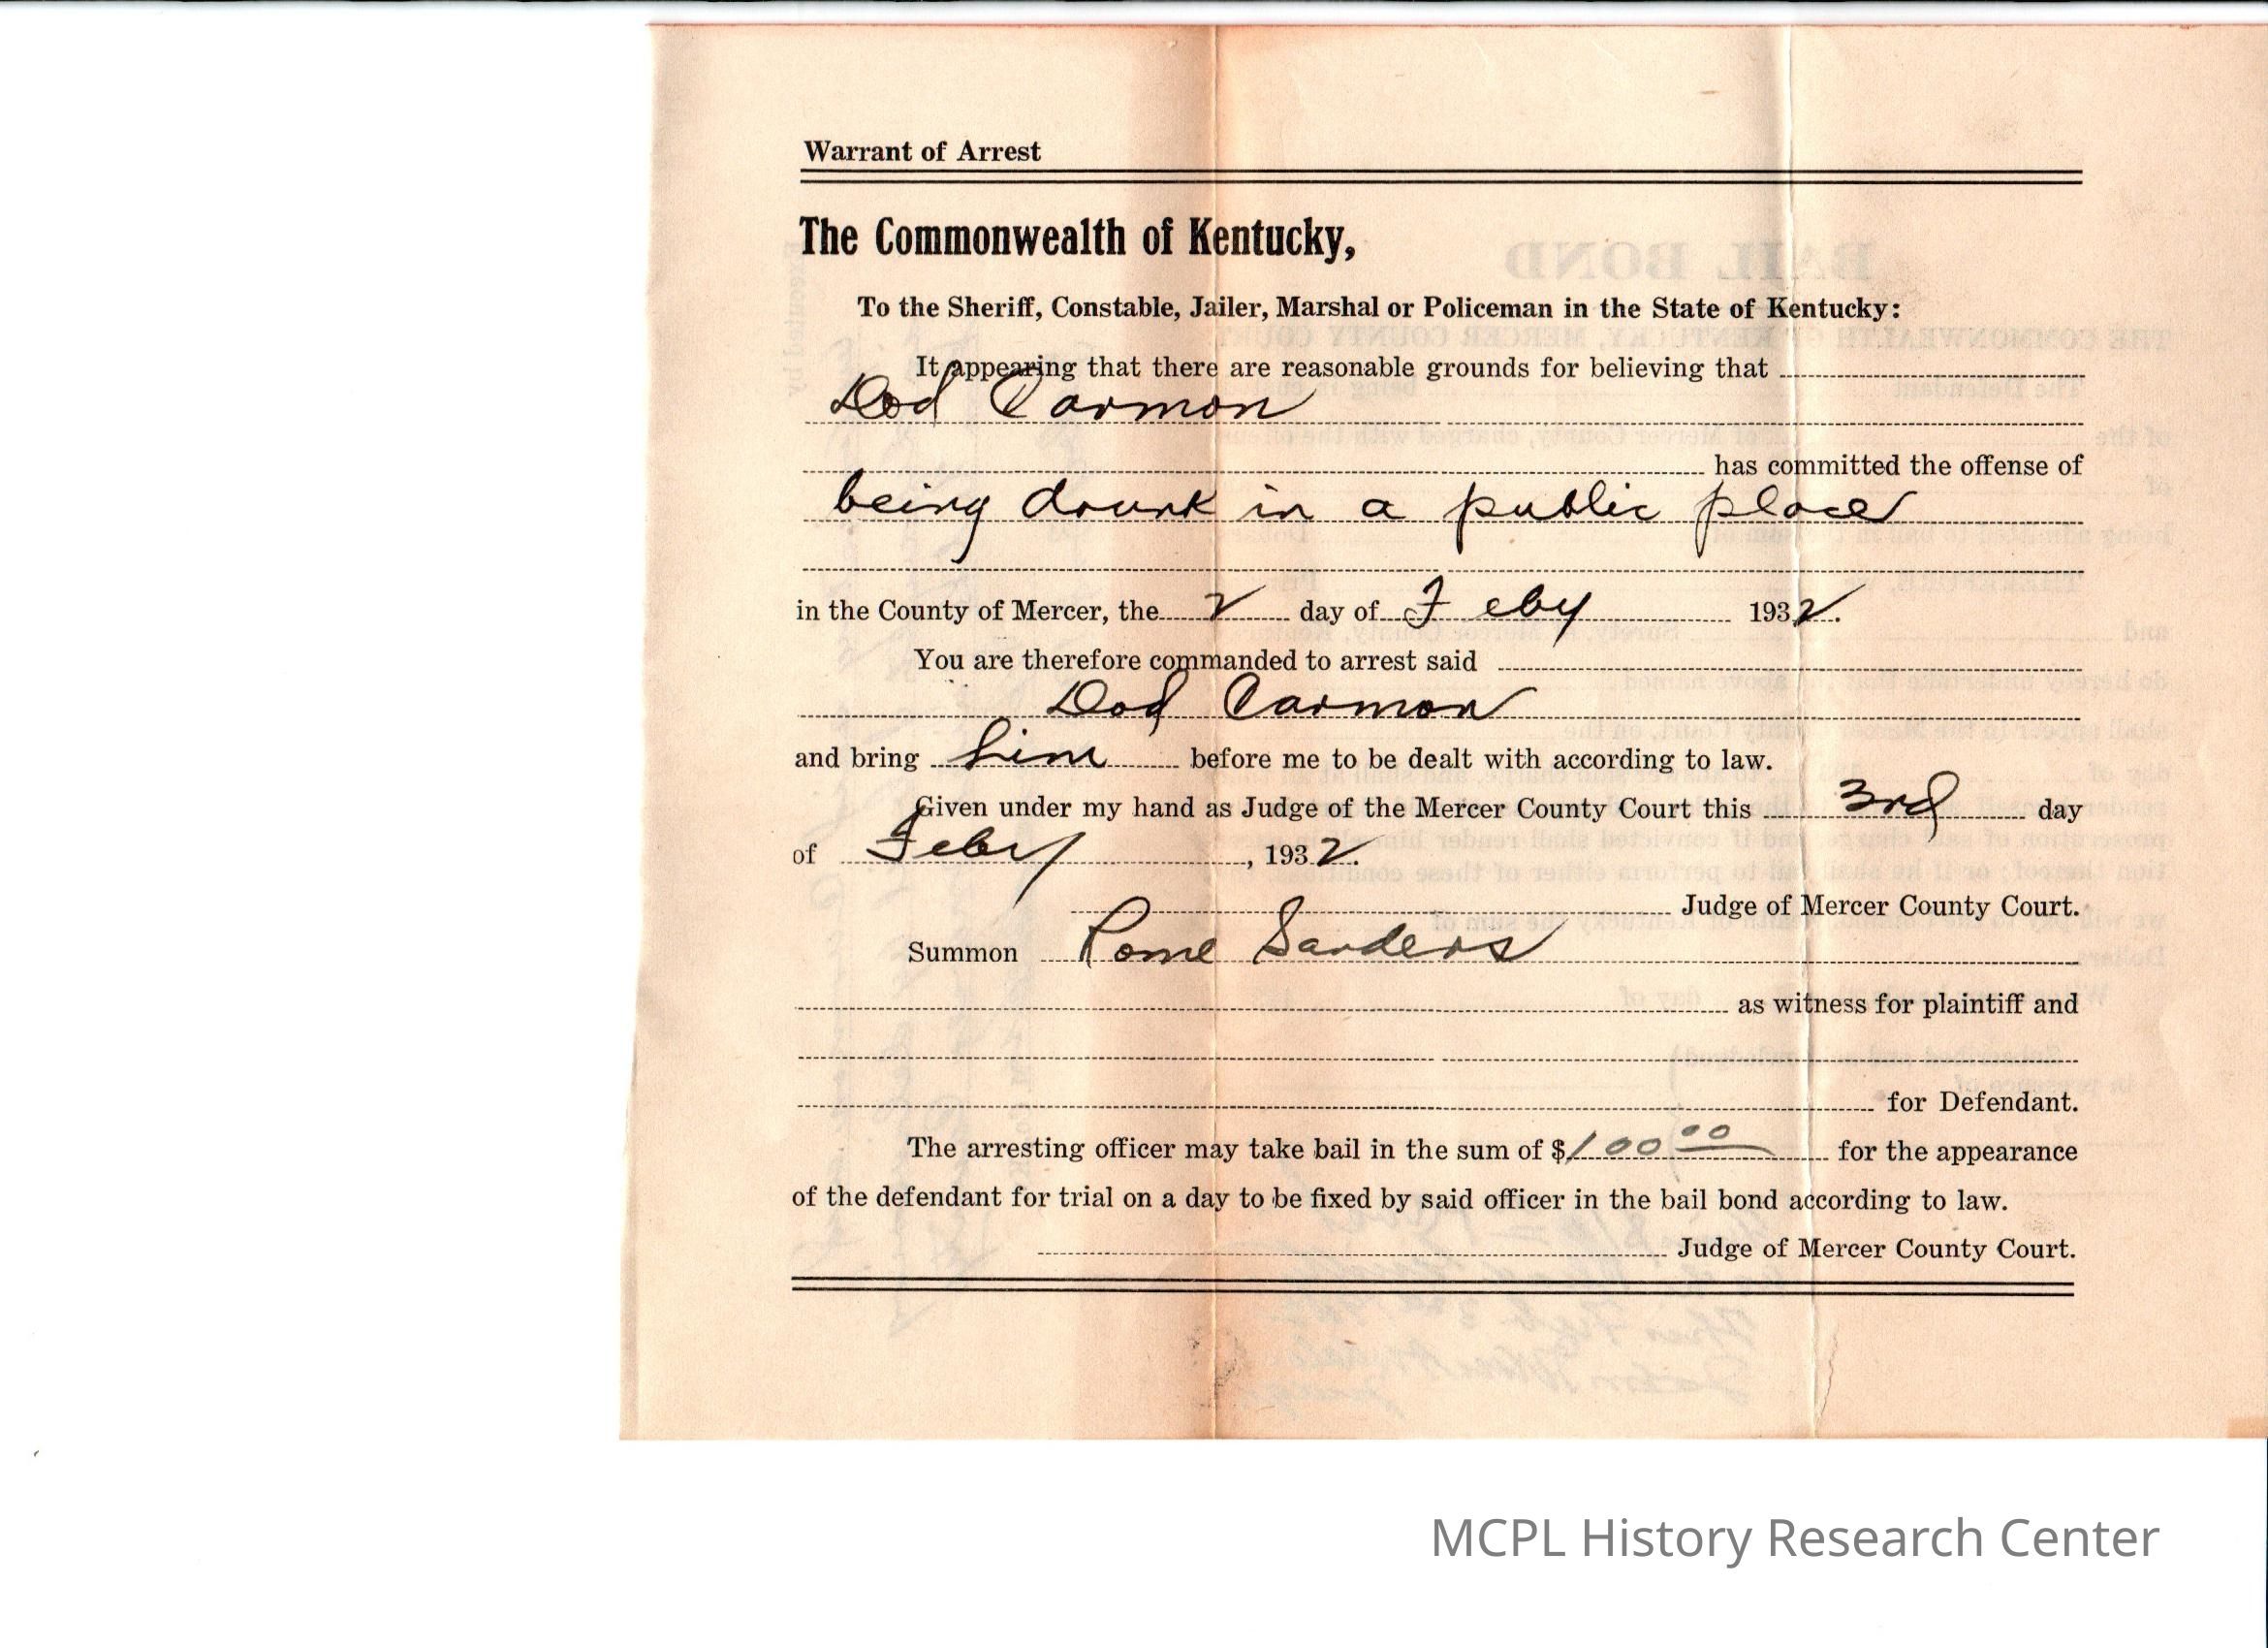 Warrant of Arrest
The Commonwealth of Kentucky,
To the Sheriff, Constable, Jailer, Marshal or Policeman in the State of Kentucky:
It appearing that there are reasonable grounds for believing that
Dod Carmon
has committed the offense of
being drunk in a public place
in the County of Mercer, the 2 day of Feby 1932.
You are therefore commanded to arrest said
Dod Carmon
and bring him before me to be dealt with according to law.
Given under my hand as Judge of the Mercer County Court this 3rd day
of Feby, 1932.
Judge of Mercer County Court.
Summon Rome Sanders
as witness for plaintiff and
for Defendant.
The arresting officer may take bail in the sum of $100.00 for the appearance
of the defendant for trial on a day to be fixed by said officer in the bail bond according to law.
Judge of Mercer County Court.
MCPL History Research Center